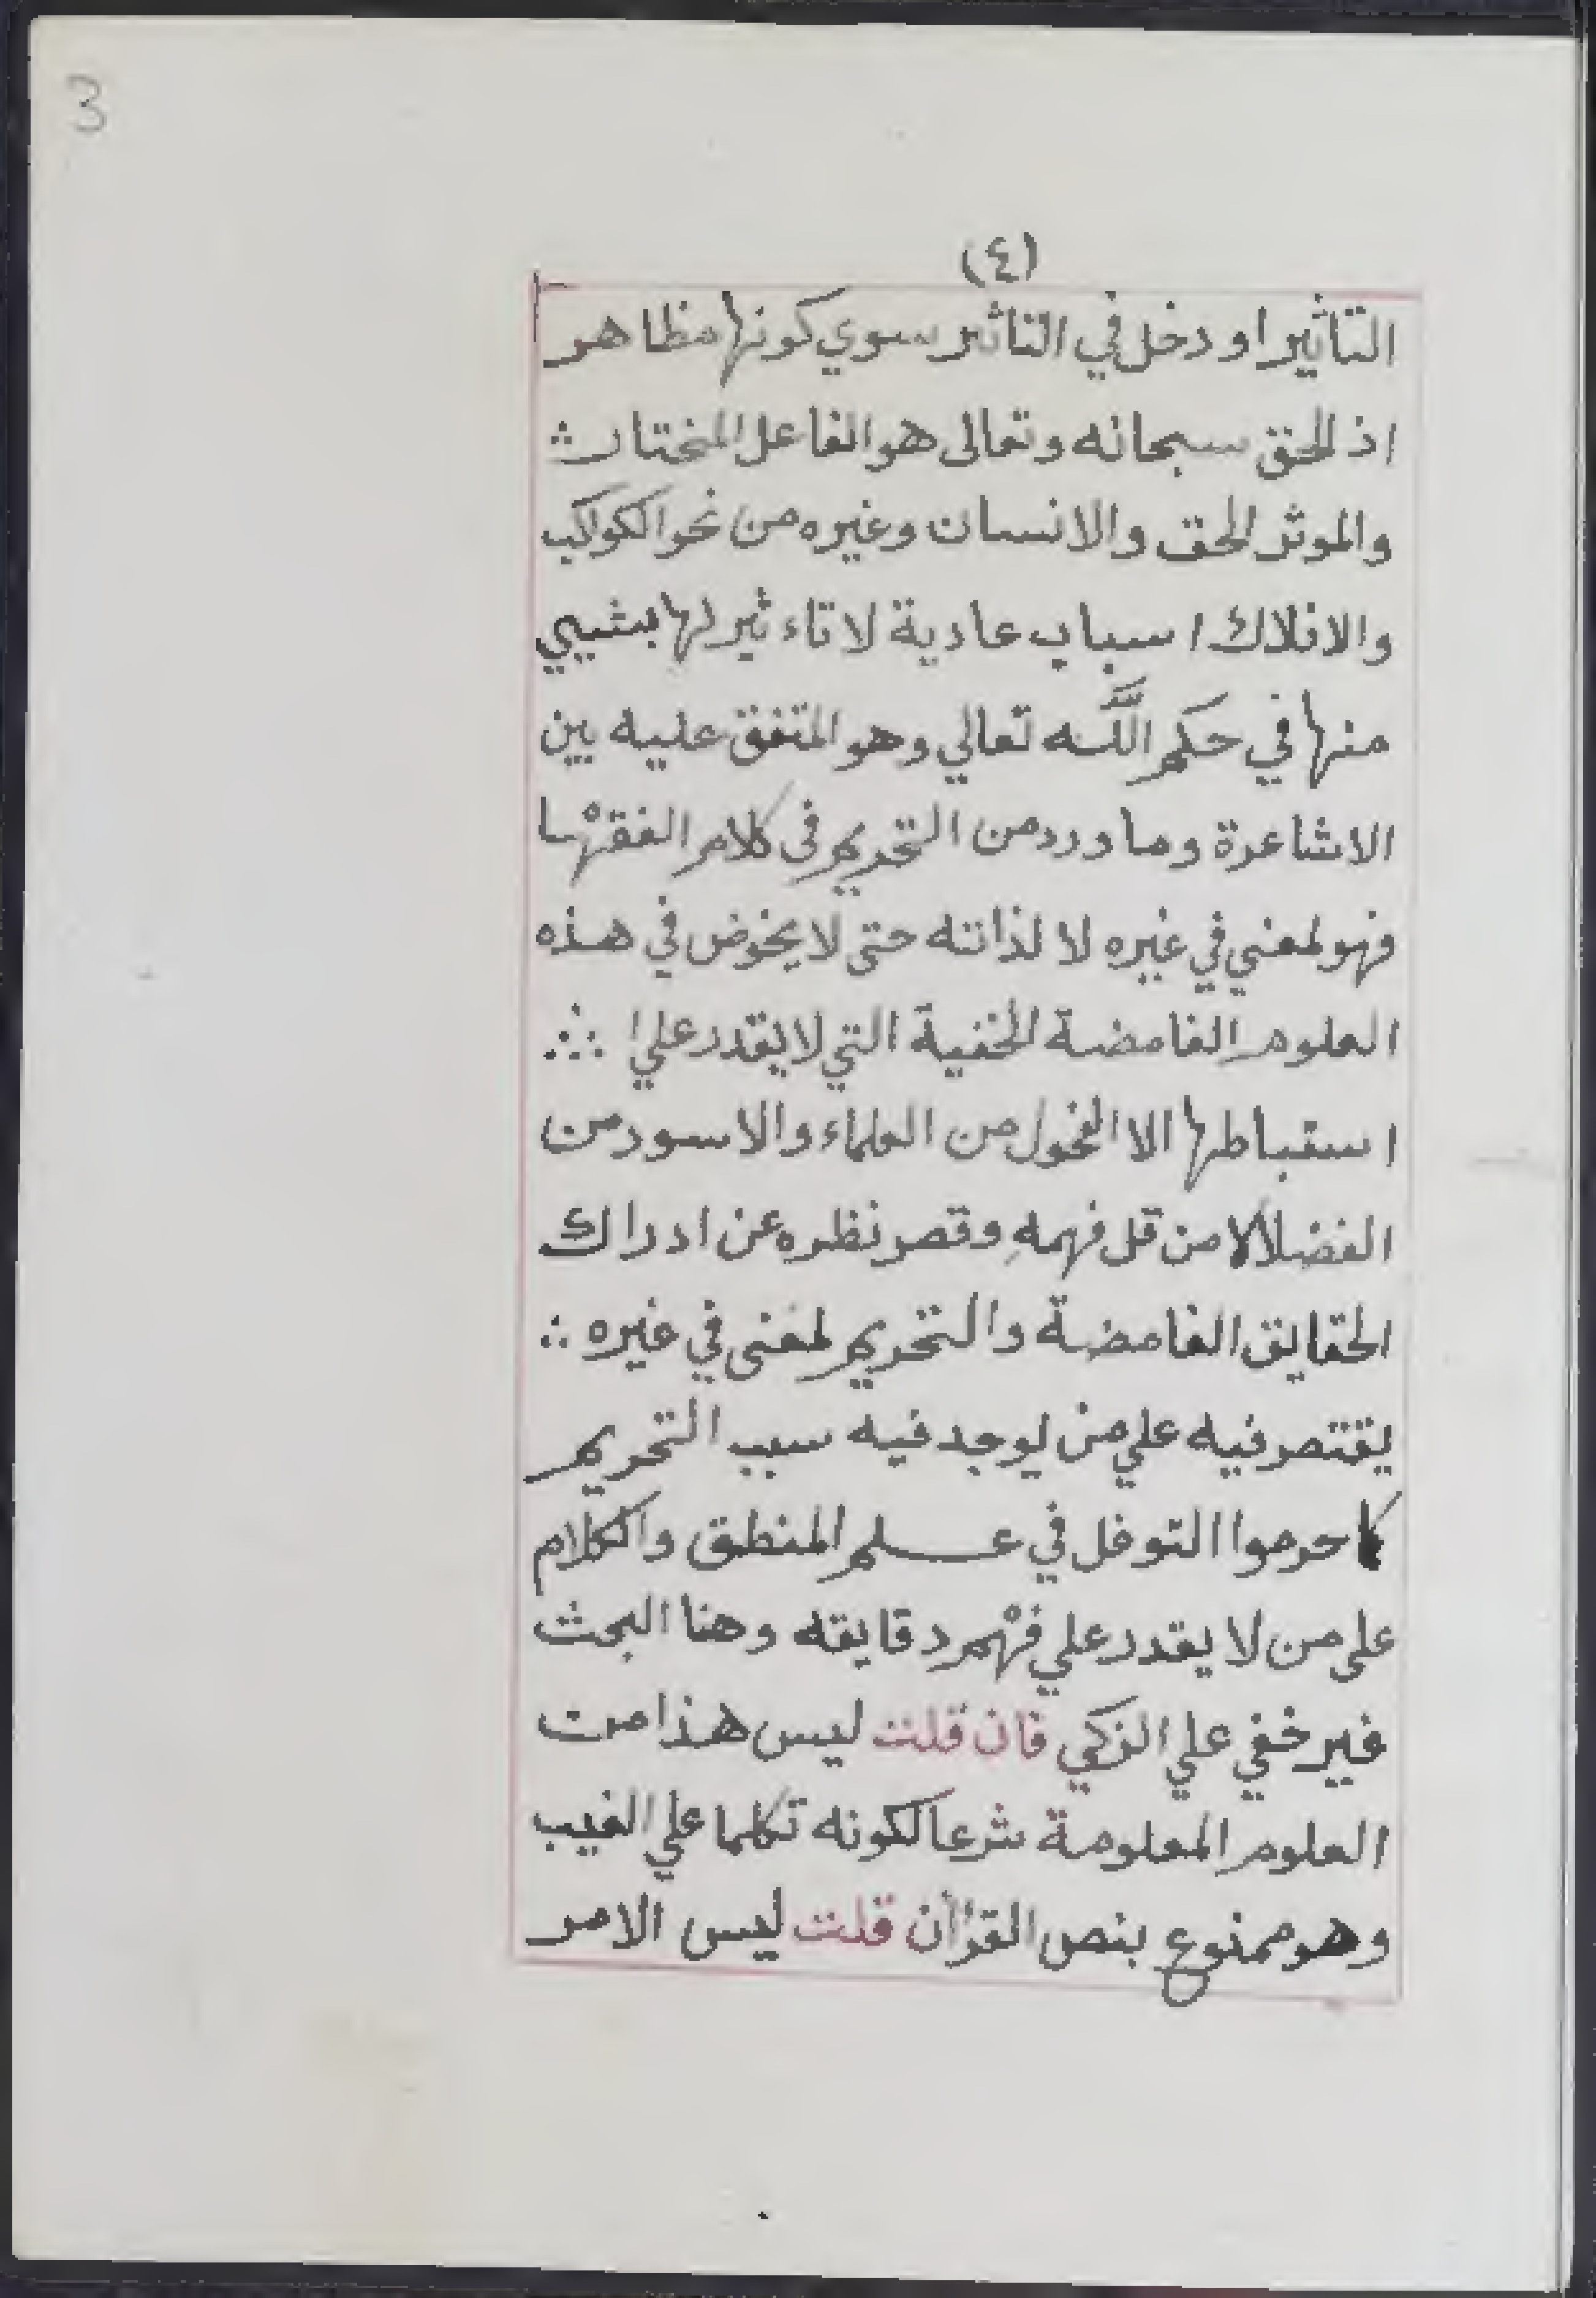 3
(٤)
التاثير او دخل في التاثر سوي كونها مظاهر
اذ الحق سبحانه وتعالى هو الفاعل المختار
والموثر الحق والانسان وغيره من نحو الكواكب
والافلاك اسباب عادية لا تاءثير لها بشيي
منها في حكم اللَّه تعالي وهو المتفق عليه بين
الاشاعرة وما ورد من التحريم في كلام الفقها
فهو لمعني في غيره لا لذاته حتى لا يخوض في هذه
العلوم الغامضة الخفية التي لا يقدر علي
استباطها الا الفحول من العلماء والاسود من
الفضلا لا من قل فهمهِ وقصر نظره عن ادراك
الحقايق الغامضة والتحريم لمعنى في غيره
يقتصر فيه علي من يوجد فيه سبب التحريم
كما حرموا التوغل في علم المنطق والكلام
على من لا يقدر علي فهم دقايقه وهنا البحث
غير خفي علي الذكي فان قلت ليس هذا من
العلوم المعلومة شرعا لكونه تكلما علي الغيب
وهو ممنوع بنص القرأن قلت ليس الامر